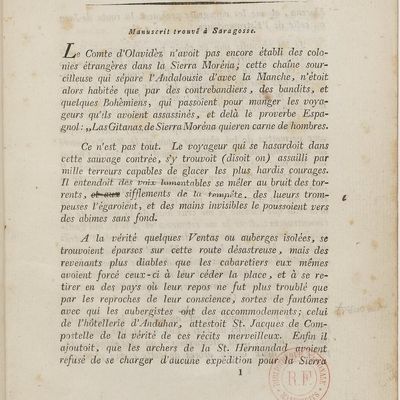 Manuscrit trouvé à Saragosse.
Le Comte d'Olavidèz n'avoit pas encore établi des colo-
nies étrangères dans la Sierra Moréna; cette chaîne sour-
cilleuse qui sépare l'Andalousie d'avec la Manche, n'étoit
alors habitée que par des contrebandiers, des bandits, et
quelques Bohèmiens, qui passoient pour manger les voya-
geurs qu'ils avoient assassinés, et delà le proverbe Espa-
gnol: „Las Gitanas de Sierra Moréna quieren carne de hombres.
Ce n'est pas tout. Le voyageur qui se hasardoit dans
cette sauvage contrée, s'y trouvoit (disoit on) assailli par
mille terreurs capables de glacer les plus hardis courages.
Il entendoit des voix lamentables se mêler au bruit des tor-
rents, et aux sifflements de la tempête, des lueurs trom-
peuses l'égaroient, et des mains invisibles le poussoient vers
des abimes sans fond.
A la vérité quelques Ventas ou auberges isolées, se
trouvoient éparses sur cette route désastreuse, mais des
revenants plus diables que les cabaretiers eux mêmes
avoient forcé ceux-ci à leur céder la place, et à se re-
tirer en des pays où leur repos ne fut plus troublé que
par les reproches de leur conscience, sortes de fantômes
avec qui les aubergistes ont des accommodements; celui
de l'hôtellerie d'Anduhar, attestoit St. Jacques de Com-
postelle de la vérité de ces récits merveilleux. Enfin il
ajoutoit, que les archers de la St. Hermandad avoient
refusé de se charger d'aucune expédition pour la Sierra
1
R.F.